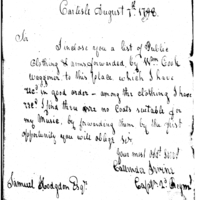 Carlisle August 7th. 1798.
Sir
I inclose you a list of Public
Clothing & arms forwarded by Wm. Cook
waggoner to this place which I have
rec'd in good order - among the clothing I have
rec'd I find there are no Coats suitable for
my Music, by forwarding them by the first
opportunity you will oblige Sir.
your most Obt. Servt.
Callender Irvine
Capt. 2d Regmt.
Samuel Hodgdon Esqr.